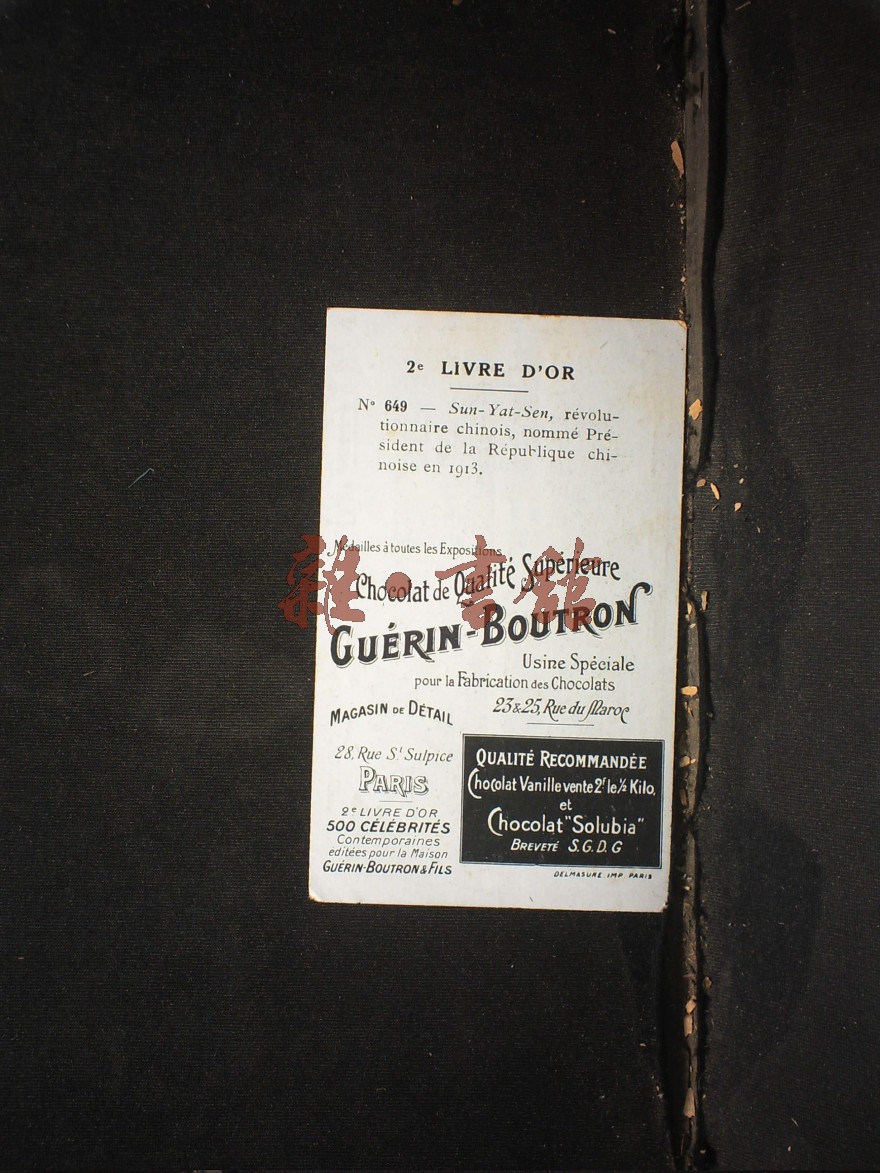 2e LIVRE D'OR
No 649 — Sun-Yat-Sen, révolu-
tionnaire chinois, nommé Pré-
sident de la République chi-
noise en 1913.
Médailles à toutes les Expositions
Chocolat de Qualité Supérieure
GUÉRIN-BOUTRON
Usine Spéciale
pour la Fabrication des Chocolats
23 & 25, Rue du Maroc
MAGASIN DE DÉTAIL
28, Rue St Sulpice
PARIS
2e LIVRE D'OR
500 CÉLÉBRITÉS
Contemporaines
éditées pour la Maison
GUÉRIN-BOUTRON & FILS
QUALITÉ RECOMMANDÉE
Chocolat Vanille vente 2f le ½ Kilo.
et
Chocolat "Solubia"
BREVETÉ S.G.D.G
DELMASURE IMP. PARIS
雜·書館